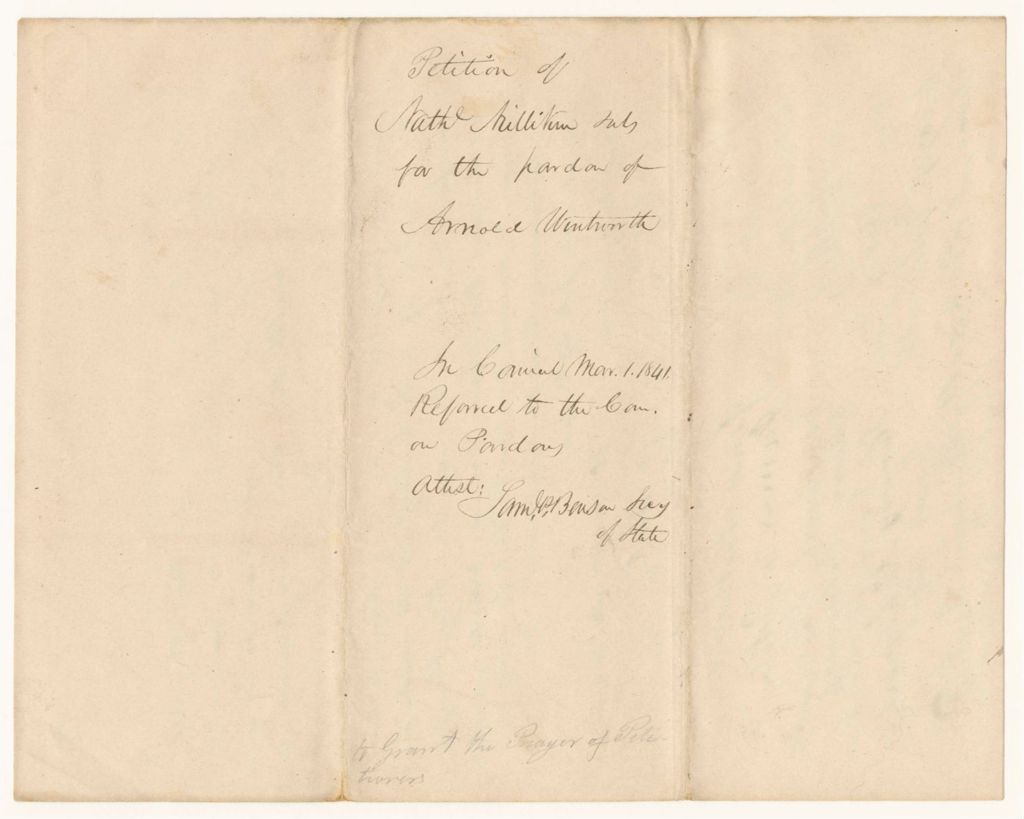 Petition of
Nathl Milliken & als
for the pardon of
Arnold Wentworth
In Council Mar. 1. 1841.
Referred to the Com.
on Pardons
Attest:
Saml. P. Benson Secy
of State
to Grant the Prayer of Peti-
tioners